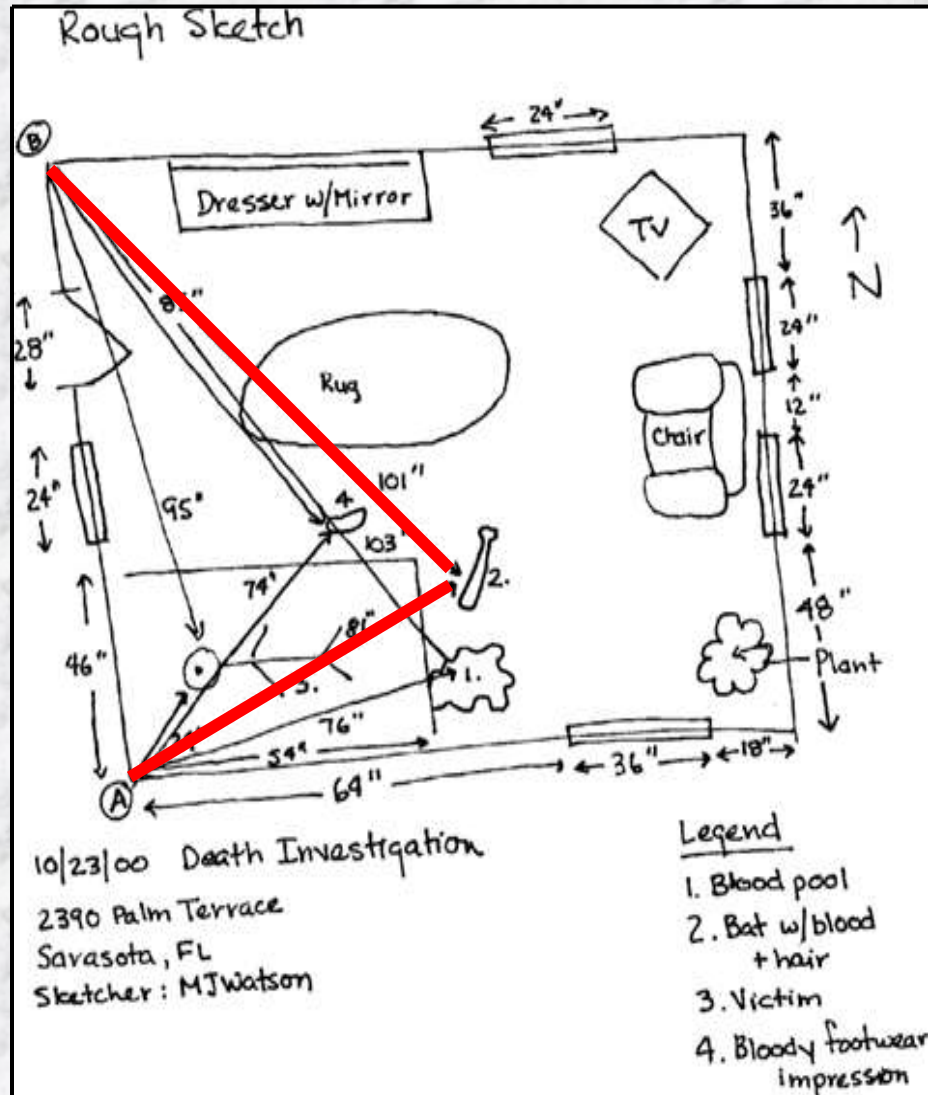 Rough Sketch
B
24"
Dresser w/Mirror
TV
36"
N
28"
24"
Rug
12"
Chair
24"
101"
24"
95"
4
103"
74"
2.
48"
81"
46"
3.
1.
Plant
76"
54"
64"
36"
18"
A
10/23/00 Death Investigation
2390 Palm Terrace
Sarasota, FL
Sketcher: MJWatson
Legend
1. Blood pool
2. Bat w/blood
+ hair
3. Victim
4. Bloody footwear
impression